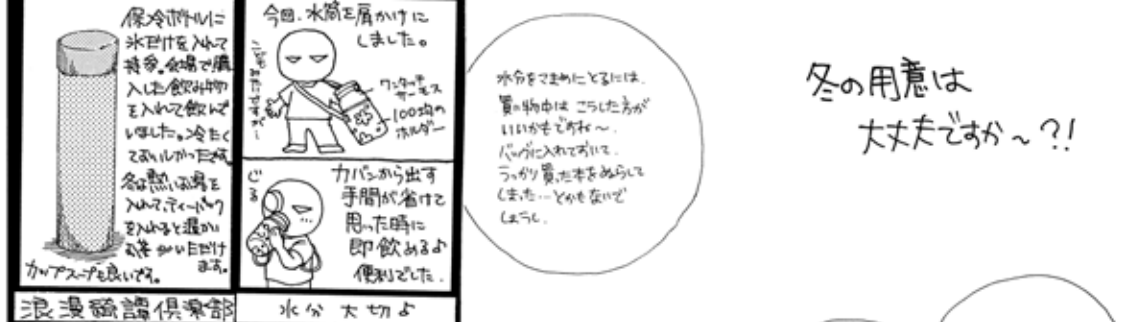 保冷ボトルに
氷だけを入れて
持参。会場で購
入した飲み物
を入れて飲んで
いました。冷たく
ておいしかったです。
冬は熱いお湯を
入れて、ティーバッグ
を入れると温かい
お茶がいただけ
ます。
カップスープも良いです。
浪漫奇譚倶楽部
今回、水筒を肩かけに
しました。
ワンタッチ
サーモス
100均の
ホルダー
じる
カバンから出す
手間が省けて
思った時に
即飲める♪
便利でした.
水分大切♪
水分をこまめにとるには、
買い物中は こうした方が
いいかもですね〜.
バッグに入れておいて、
うっかり買った本をぬらして
しまった…とかもないで
しょうし.
冬の用意は
大丈夫ですか〜?!